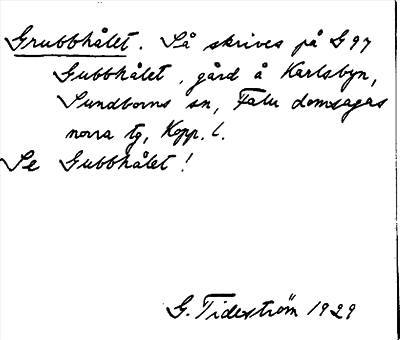 Grubbhålet. Så skrives på G 97
Gubbhålet, gård å Karlsbyn,
Sundborns sn, Falu domsagas
norra tg, Kopp. l.
Se Gubbhålet!
G. Tideström 1929